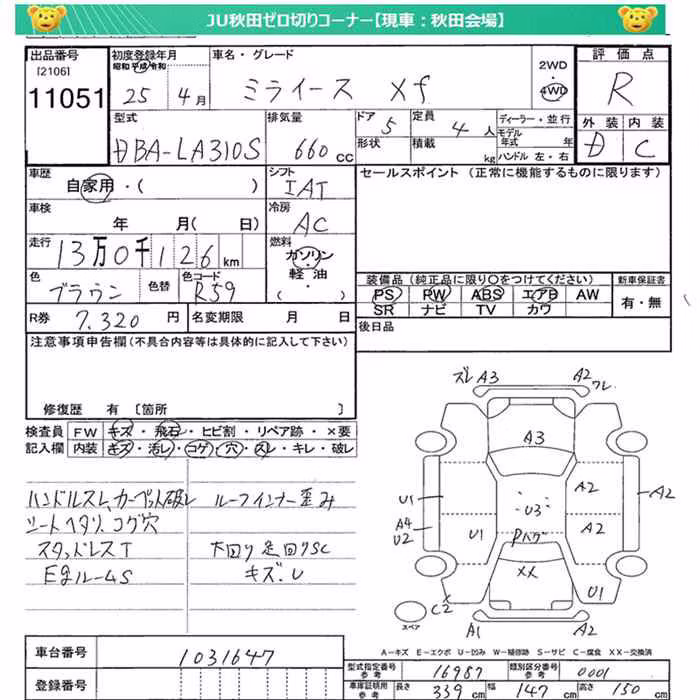 JU秋田ゼロ切りコーナー【現車：秋田会場】
出品番号
[2106]
11051
初度登録年月
昭和 平成 令和
25年4月
車名・グレード
ミライース Xf
2WD
・
4WD
評価点
R
外装 内装
D C
型式
DBA-LA310S
排気量
660cc
ドア
5
形状
定員
4人
積載
kg
ディーラー・並行
モデル
年式 年
ハンドル 左・右
車歴
自家用・( )
シフト
IAT
車検
年 月(日)
冷房
AC
走行
13万0千126km
燃料
ガソリン
軽油・
( )
色
ブラウン
色替
色コード
R59
セールスポイント (正常に機能するものに限ります)
装備品(純正品に限り○をつけてください)
PS PW ABS エアB AW
SR ナビ TV カワ
新車保証書
有・無
R券
7.320円
名変期限 月 日
後日品
注意事項申告欄(不具合内容等は具体的に記入して下さい)
修復歴 有〔箇所 〕
検査員
記入欄
FW キズ・飛石・ヒビ割・リペア跡・×要
内装 キズ・汚レ・コゲ・穴・スレ・キレ・破レ
ハンドルスレ、カーペット破レ
シートヘタリ、コゲ穴
スタッドレスT
EgルームS
ルーフインナー歪み
下回り足回りSC
キズ.U
ズレ A3
A2
ワレ
A3
U1
A4
U2
U1
U3
Pハゲ
A2
A2
A2
XX
U1
X
C2
スペア
A1
A2
A－キズ E－エクボ U－凹み W－補修跡 S－サビ C－腐食 XX－交換済
車台番号
1031647
登録番号
型式指定番号
参考
16987
類別区分番号
参考
0001
車庫証明用
参考
長さ
339cm
幅
147cm
高さ
150cm